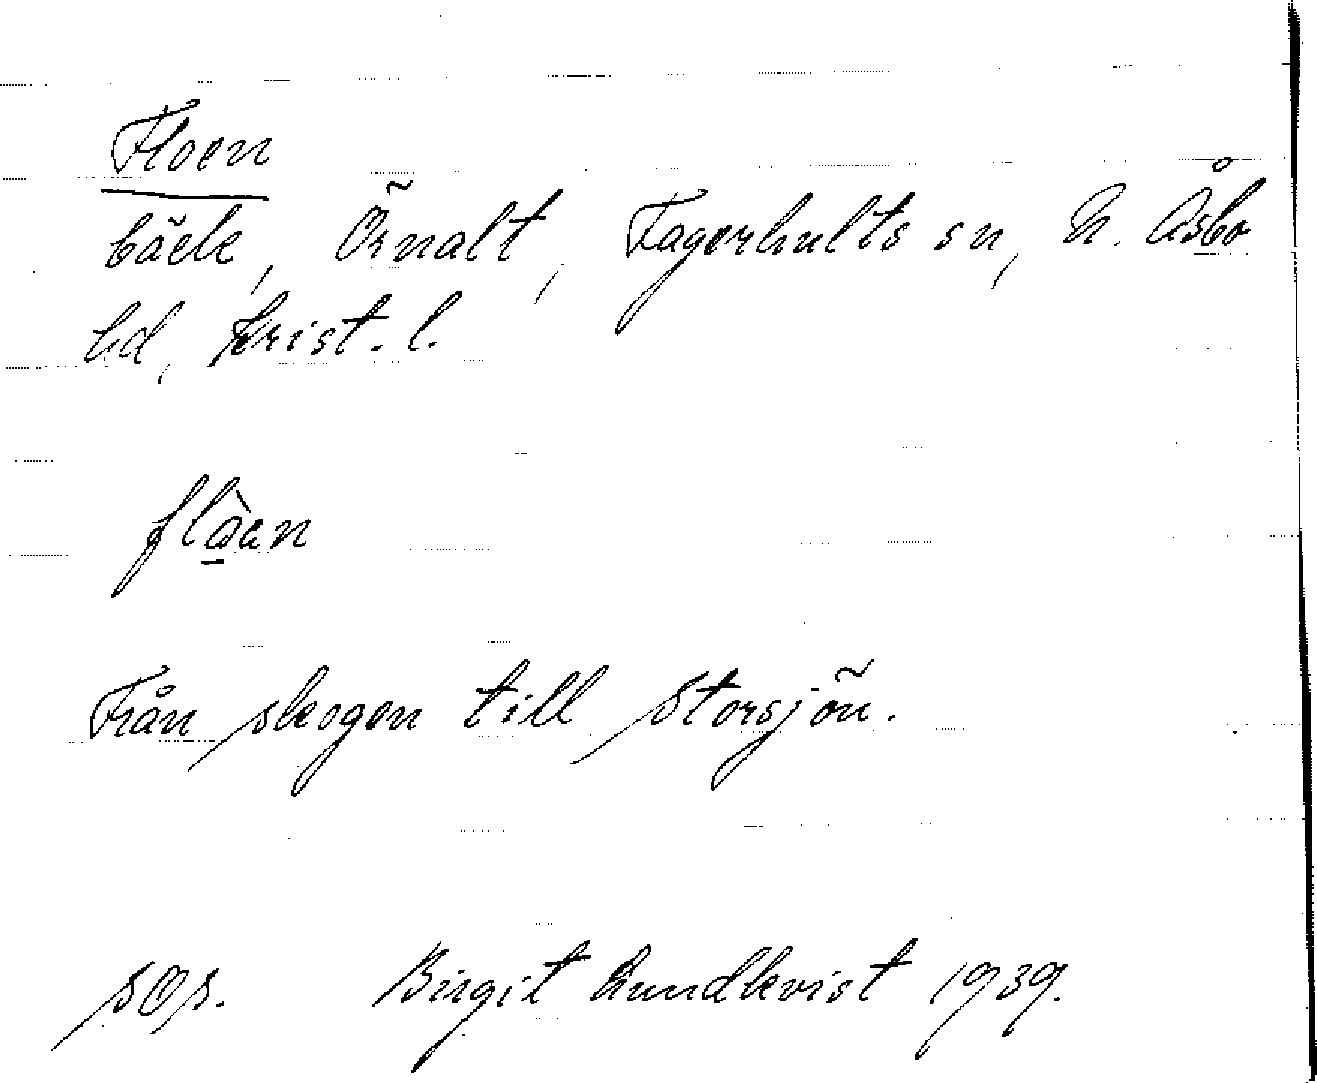 Floen
bäck, Örnalt, Fagerhults sn, N. Åsbo
hd, Krist. l.
flòən
Från skogen till Storsjön.
Birgit Lundkvist 1939.